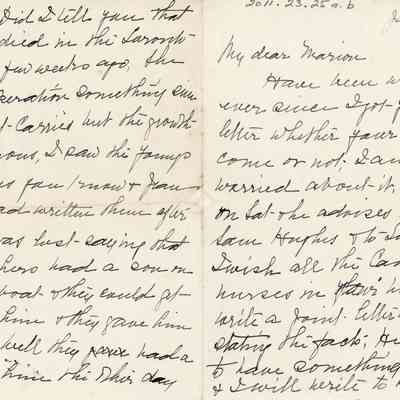 Did I tell you that
died in the Toronto
few weeks ago, she
operation something sim
Carries but the growth
nous, I saw the Youngs
us for
had written them after
was lost saying that
hero had a son on
boat & they could get
him & they gave him
well they had a
him the other day
2011.23.25a.b
My dear Marion
Have been w
ever since I got y
letter whether your
come or not; I am
worried about it,
on Sat. she advises
Sam Hughes & to
I wish all the Can
nurses in
write a joint letter
stating the facts; He
to have something
& I will write to